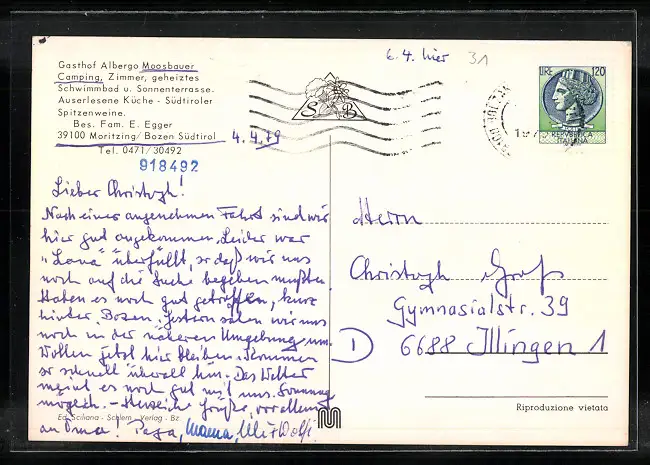 6.4. hier 31
Gasthof Albergo Moosbauer
Camping, Zimmer, geheiztes
Schwimmbad u. Sonnenterrasse.
Auserlesene Küche - Südtiroler
Spitzenweine.
Bes. Fam. E. Egger
39100 Moritzing/Bozen Südtirol
Tel. 0471/30492
918492
4.4.79
S B
LIRE 120
REPVBBLICA
ITALIANA
Lieber Christoph!
Nach einer angenehmen Fahrt sind wir
hier gut angekommen. Leider war
"Lana" überfüllt, so daß wir uns
noch auf die Suche begeben mußten.
Haben es noch gut getroffen, kurz
hinter Bozen. Gestern sahen wir uns
noch in der näheren Umgebung um.
Wollen jetzt hier bleiben. Kommen
so schnell überall hin. Das Wetter
meint es noch gut mit uns. Sonnung
möglich. - Herzliche Grüße, vor allem
an Oma! Papa, Mama, Uli + Wolfi
Herrn
Christoph Groß
Gymnasialstr. 39
D 6688 Illingen 1
Ed. Sciliana - Schlern - Verlag - Bz.
Riproduzione vietata